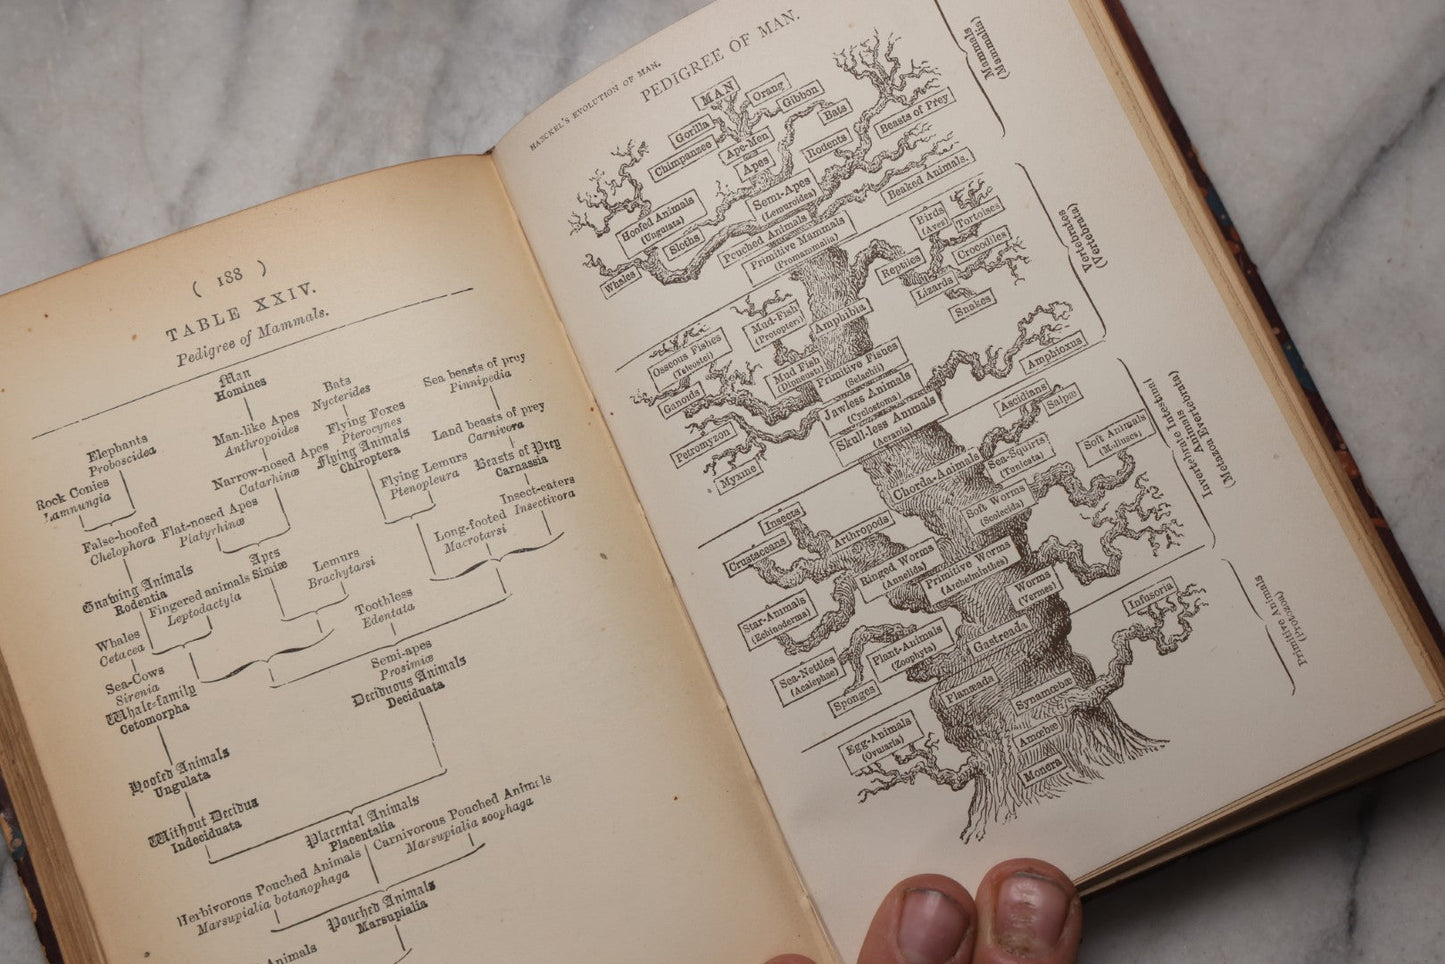 ( 188 )
TABLE XXIV.
Pedigree of Mammals.
Man
Homines
Bats
Nycterides
Sea beasts of prey
Pinnipedia
Elephants
Proboscidea
Man-like Apes
Anthropoides
Flying Foxes
Pterocynes
Land beasts of prey
Carnivora
Rock Conies
Lamnungia
Narrow-nosed Apes
Catarhinæ
Flying Animals
Chiroptera
Flying Lemurs
Ptenopleura
Beasts of Prey
Carnassia
False-hoofed
Chelophora
Flat-nosed Apes
Platyrhinæ
Insect-eaters
Insectivora
Long-footed
Macrotarsi
Apes
Simiæ
Lemurs
Brachytarsi
Gnawing Animals
Rodentia
Fingered animals
Leptodactyla
Toothless
Edentata
Whales
Cetacea
Sea-Cows
Sirenia
Semi-apes
Prosimiæ
Whale-family
Cetomorpha
Deciduous Animals
Deciduata
Hoofed Animals
Ungulata
Without Decidua
Indeciduata
Placental Animals
Placentalia
Herbivorous Pouched Animals
Marsupialia botanophaga
Carnivorous Pouched Animals
Marsupialia zoophaga
Pouched Animals
Marsupialia
Animals
HAECKEL'S EVOLUTION OF MAN.
PEDIGREE OF MAN.
MAN
Orang
Gorilla
Gibbon
Chimpanzee
Ape-Men
Bats
Apes
Rodents
Beasts of Prey
Semi-Apes
(Lemuroides)
Hoofed Animals
(Ungulata)
Sloths
Pouched Animals
Beaked Animals.
Whales
Primitive Mammals
(Promammalia)
Mammals
(Mammalia)
Birds
(Aves)
Tortoises
Reptiles
Crocodiles
Lizards
Snakes
Mud-Fish
(Protopteri)
Amphibia
Osseous Fishes
(Teleostei)
Mud Fish
(Dipneusti)
Primitive Fishes
(Selachii)
Ganoids
Jawless Animals
(Cyclostoma)
Amphioxus
Petromyzon
Skull-less Animals
(Acrania)
Myxine
Vertebrates
(Vertebrata)
Ascidians
Salpæ
Chorda-Animals
Sea-Squirts
(Tunicata)
Soft Animals
(Molluscs)
Insects
Crustaceans
Arthropods
Soft Worms
(Scolecida)
Ringed Worms
(Annelida)
Primitive Worms
(Archelminthes)
Worms
(Vermes)
Star-Animals
(Echinoderma)
Invertebrate Intestinal
Animals
(Metazoa Evertebrata)
Infusoria
Plant-Animals
(Zoophyta)
Gastreada
Sea-Nettles
(Acalephae)
Sponges
Planæada
Synamœbæ
Egg-Animals
(Ovularia)
Amœbæ
Monera
Primitive Animals
(Protozoa)